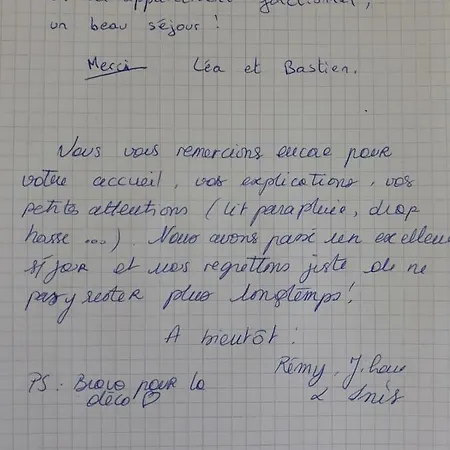 un beau séjour !
Merci Léa et Bastien.
Nous vous remercions encore pour
votre accueil, vos explications, vos
petites attentions (lit parapluie, drap
housse ...). Nous avons passé un excellent
séjour et nous regrettons juste de ne
pas y rester plus longtemps !
A bientôt !
Rémy,
& Inès
PS : Bravo pour la
déco